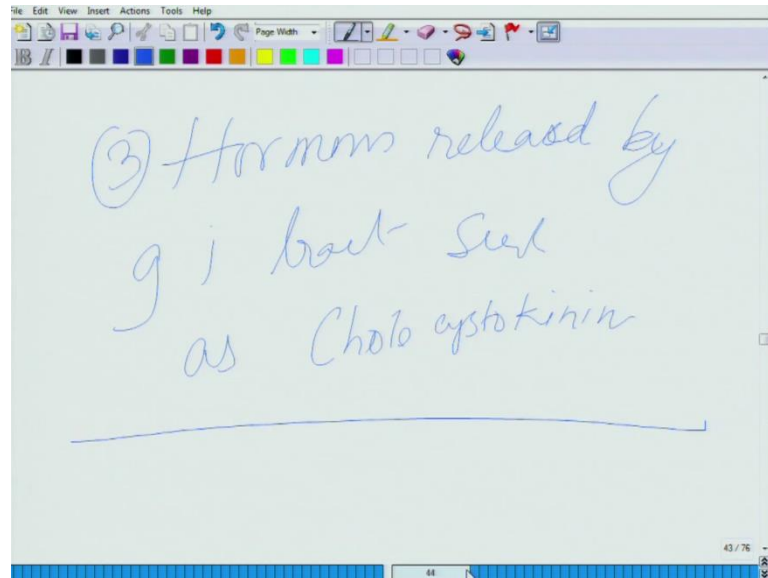 File Edit View Insert Actions Tools Help
Page Width
B I
③ Hormons released by
g i tract such
as Cholocystokinin
43 / 76
44